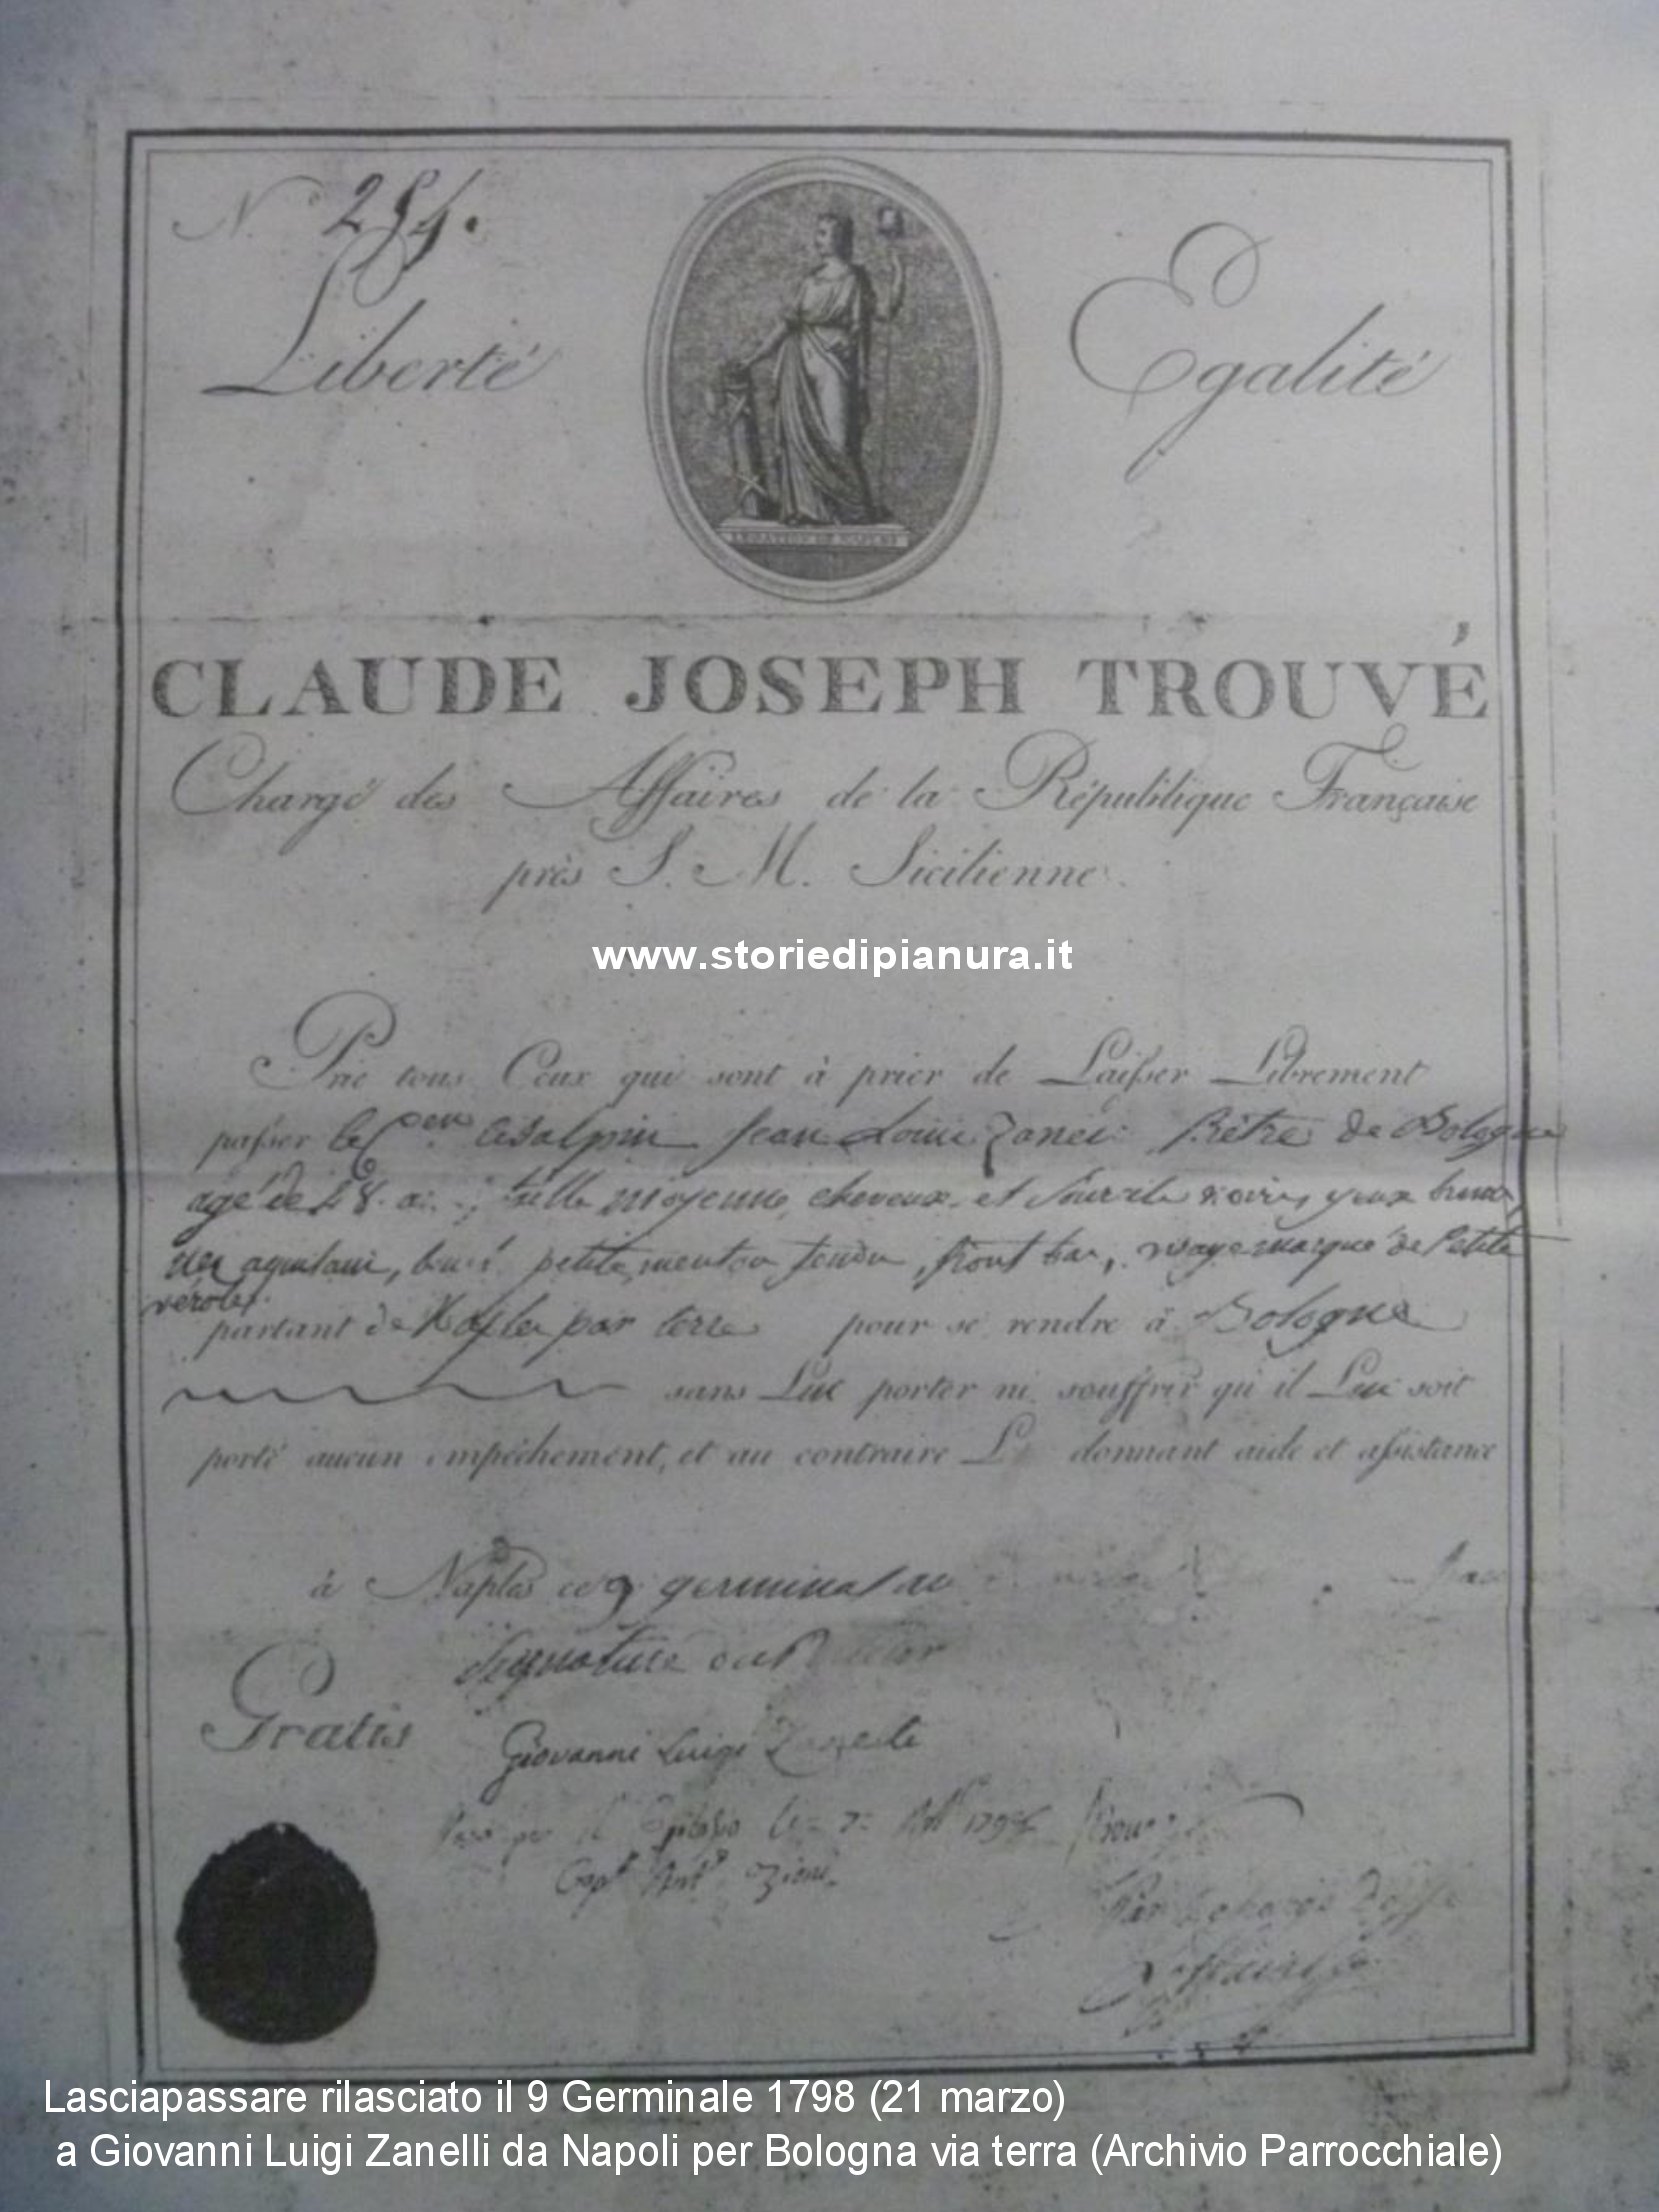 N.° 254.
Liberté Egalité
LEGATION DE NAPLES
CLAUDE JOSEPH TROUVÉ
Chargé des Affaires de la République Française
près S. M. Sicilienne.
www.storiedipianura.it
Prie tous Ceux qui sont à prier de Laisser Librement
passer le C.en Cisalpin Jean Louis Prêtre de Bologne
agé de 28 taille moyenne, cheveux et Sourcils noirs, yeux bruns,
nez aquilain, petite, menton fendu, front bas, visage marqué de Petite
vérole.
partant de Naples par terre pour se rendre à Bologne
sans Lui porter ni souffrir qu'il Lui soit
porté aucun empêchement, et au contraire L donnant aide et assistance
à Naples ce 9 germinal an
Signature du
Gratis
Giovanni Luigi Zanelli
per il li 7
Cap.
Lasciapassare rilasciato il 9 Germinale 1798 (21 marzo)
a Giovanni Luigi Zanelli da Napoli per Bologna via terra (Archivio Parrocchiale)